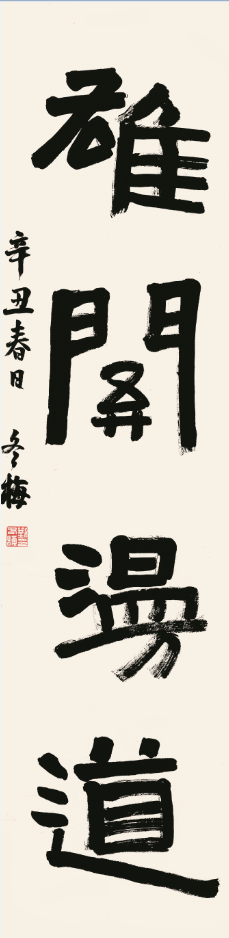 雄關漫道
辛丑春日 冬梅